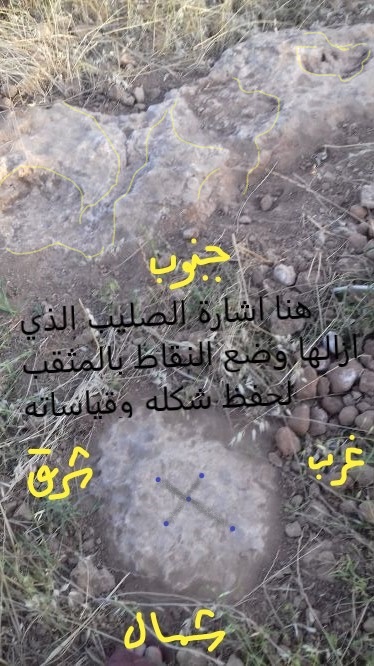 جنوب
هنا اشارة الصليب الذي
ازالها وضع النقاط بالمثقب
لحفظ شكله وقياساته
غرب
شرق
شمال